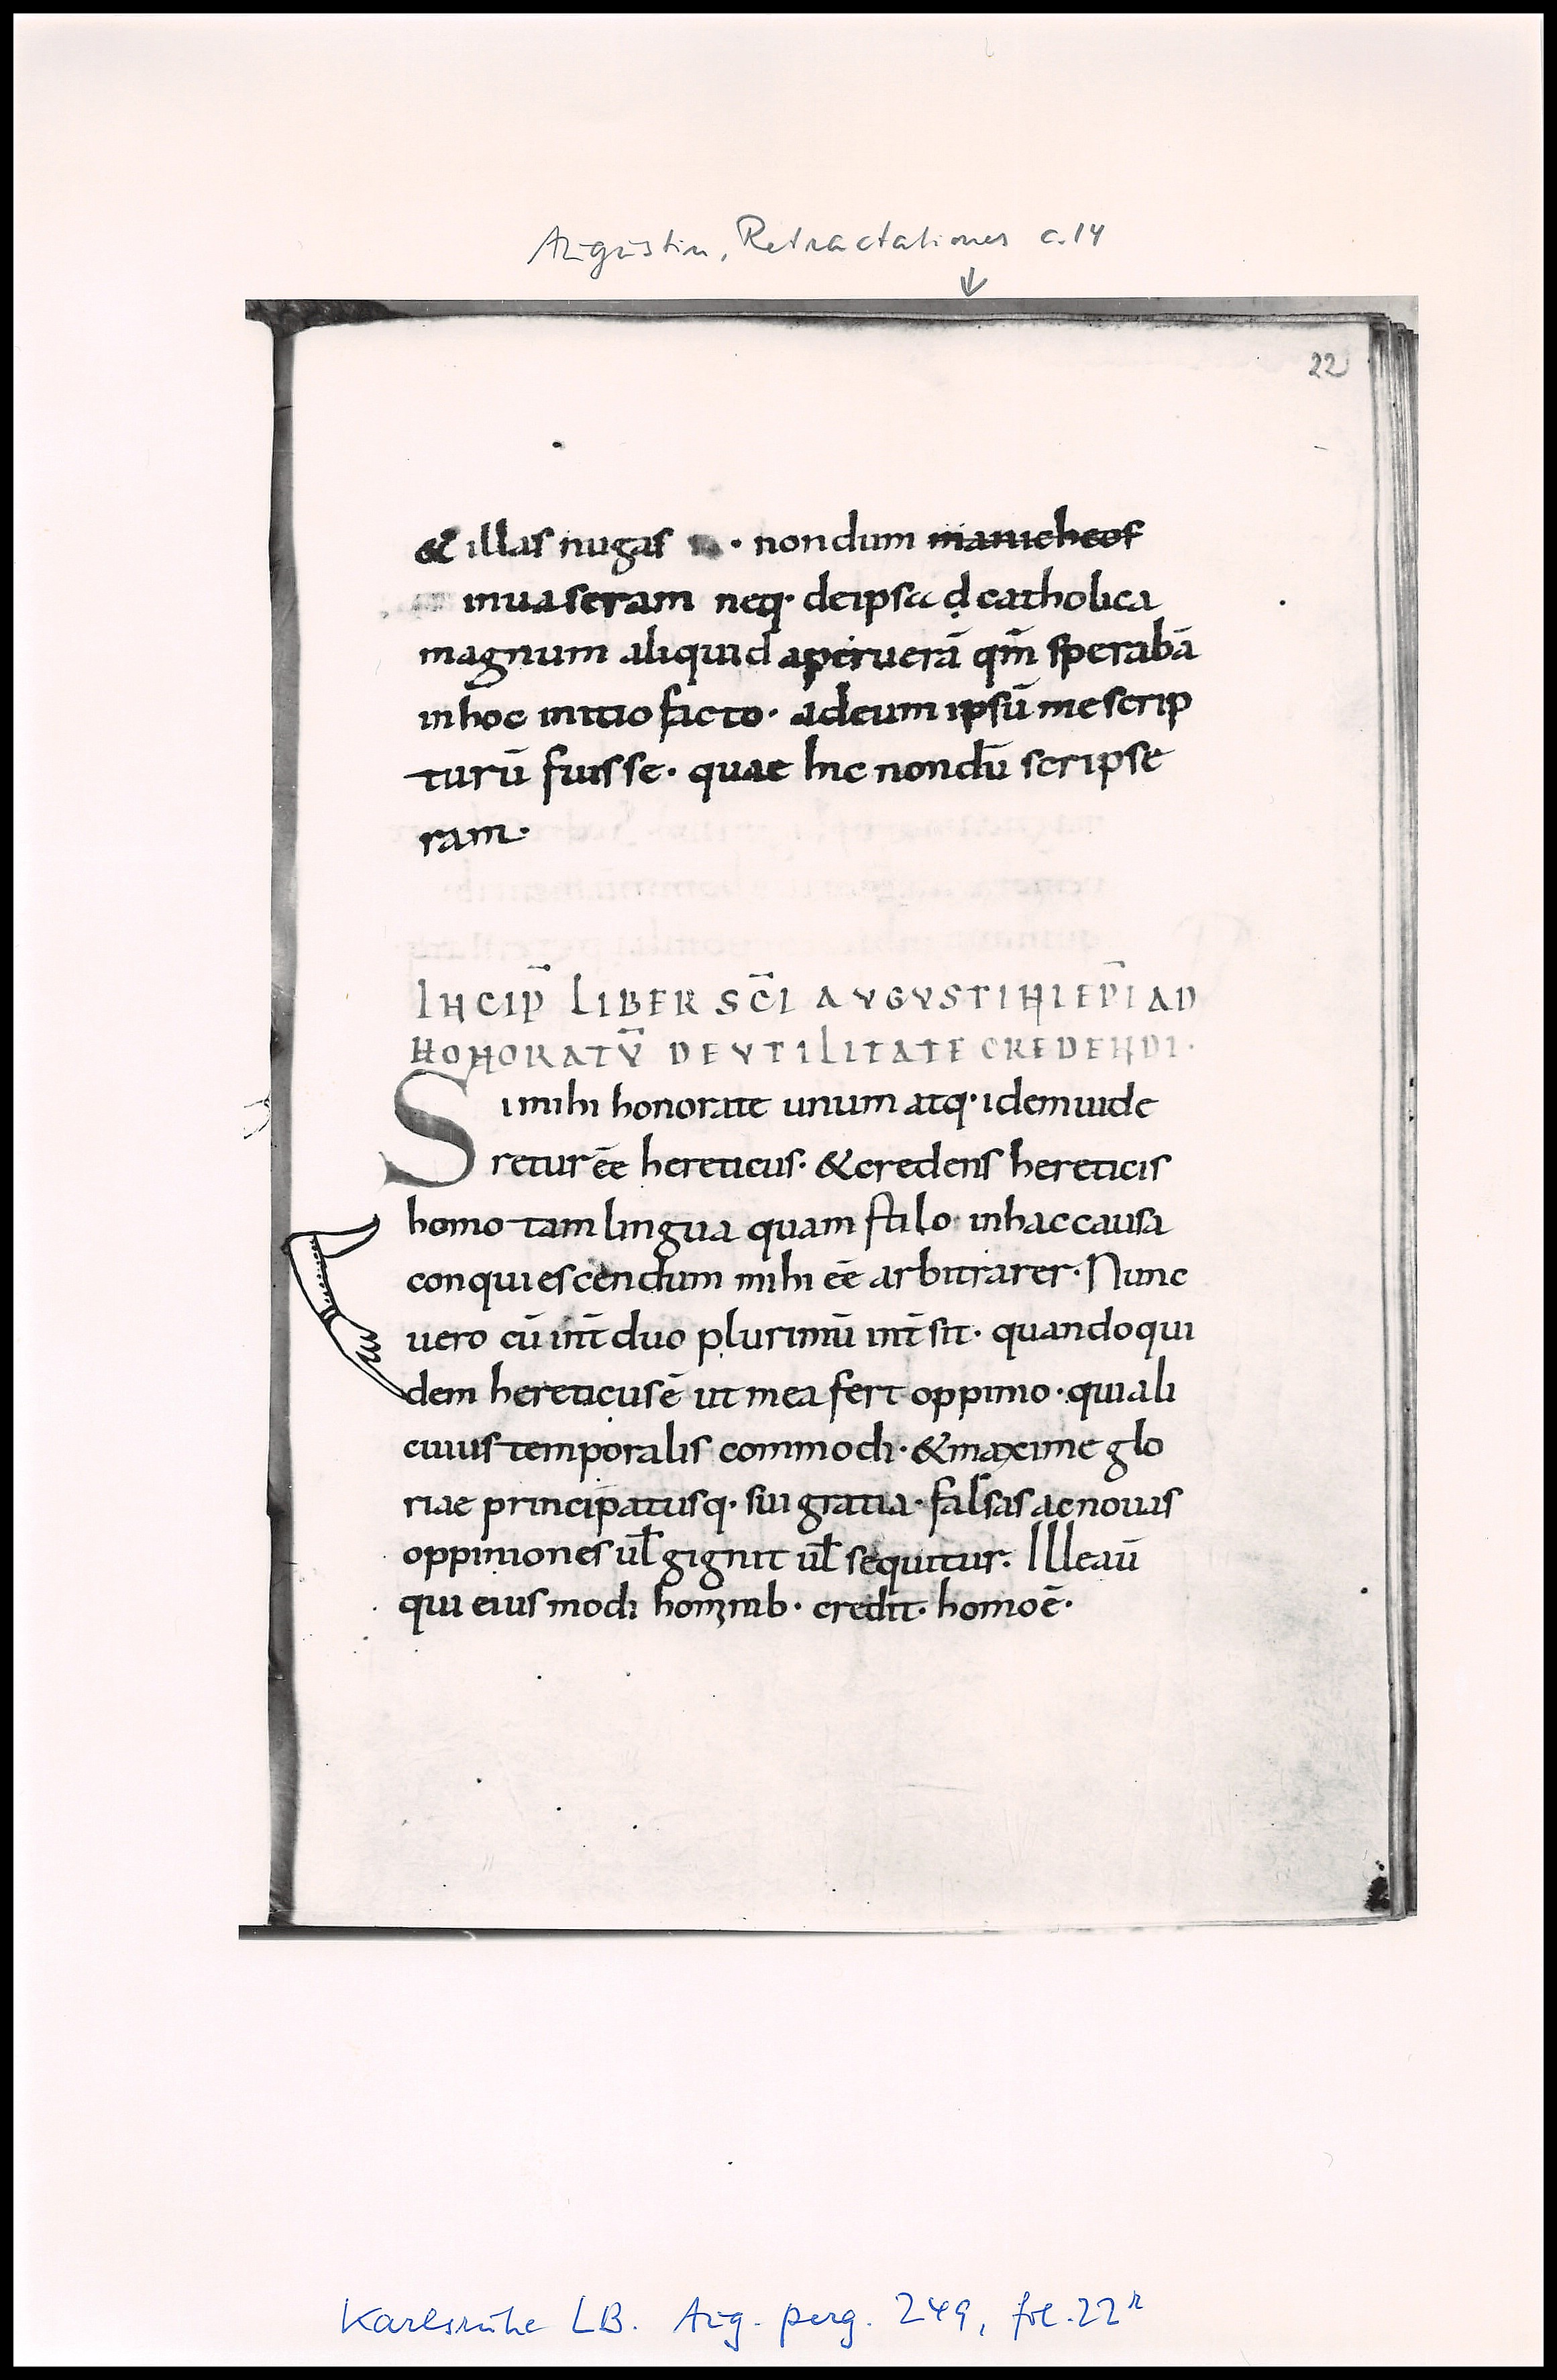 Augustin, Retractationes c. 14
↓
22
& illas nugas · nondum manicheos
inuaseram neq· deipsa d catholica
magnum aliquid aperuerā qm̄ sperabā
inhoc initio facto· adeum ipsū mescrip
turū fuisse· quae hic nondū scripse
ram·
INCIP̄ LIBER SC̄I AVGVSTINI EP̄I AD
HONORATV̄ DE VTILITATE CREDENDI·
Simihi honorate unum atq· idemuide
returēē hereticus· &credens hereticis
homo tam lingua quam stilo· inhaccausa
conquiescendum mihi ēē arbitrarer· Nunc
uero cū int̄ duo plurimū int̄sit· quandoqui
dem hereticusē ut mea fert oppinio· quiali
cuius temporalis commodi· &maxime glo
riae principatusq· sui gratia· falsas acnouas
oppiniones ul̄ gignit ul̄ sequitur· Illeaū
qui eiusmodi hominib· credit· homoē·
Karlsruhe LB. Aug. perg. 249, fol. 22r